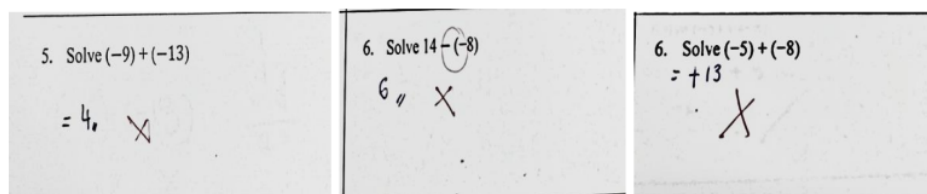 5. Solve (-9) + (-13)
= 4
6. Solve 14 - (-8)
6 //
6. Solve (-5) + (-8)
= +13